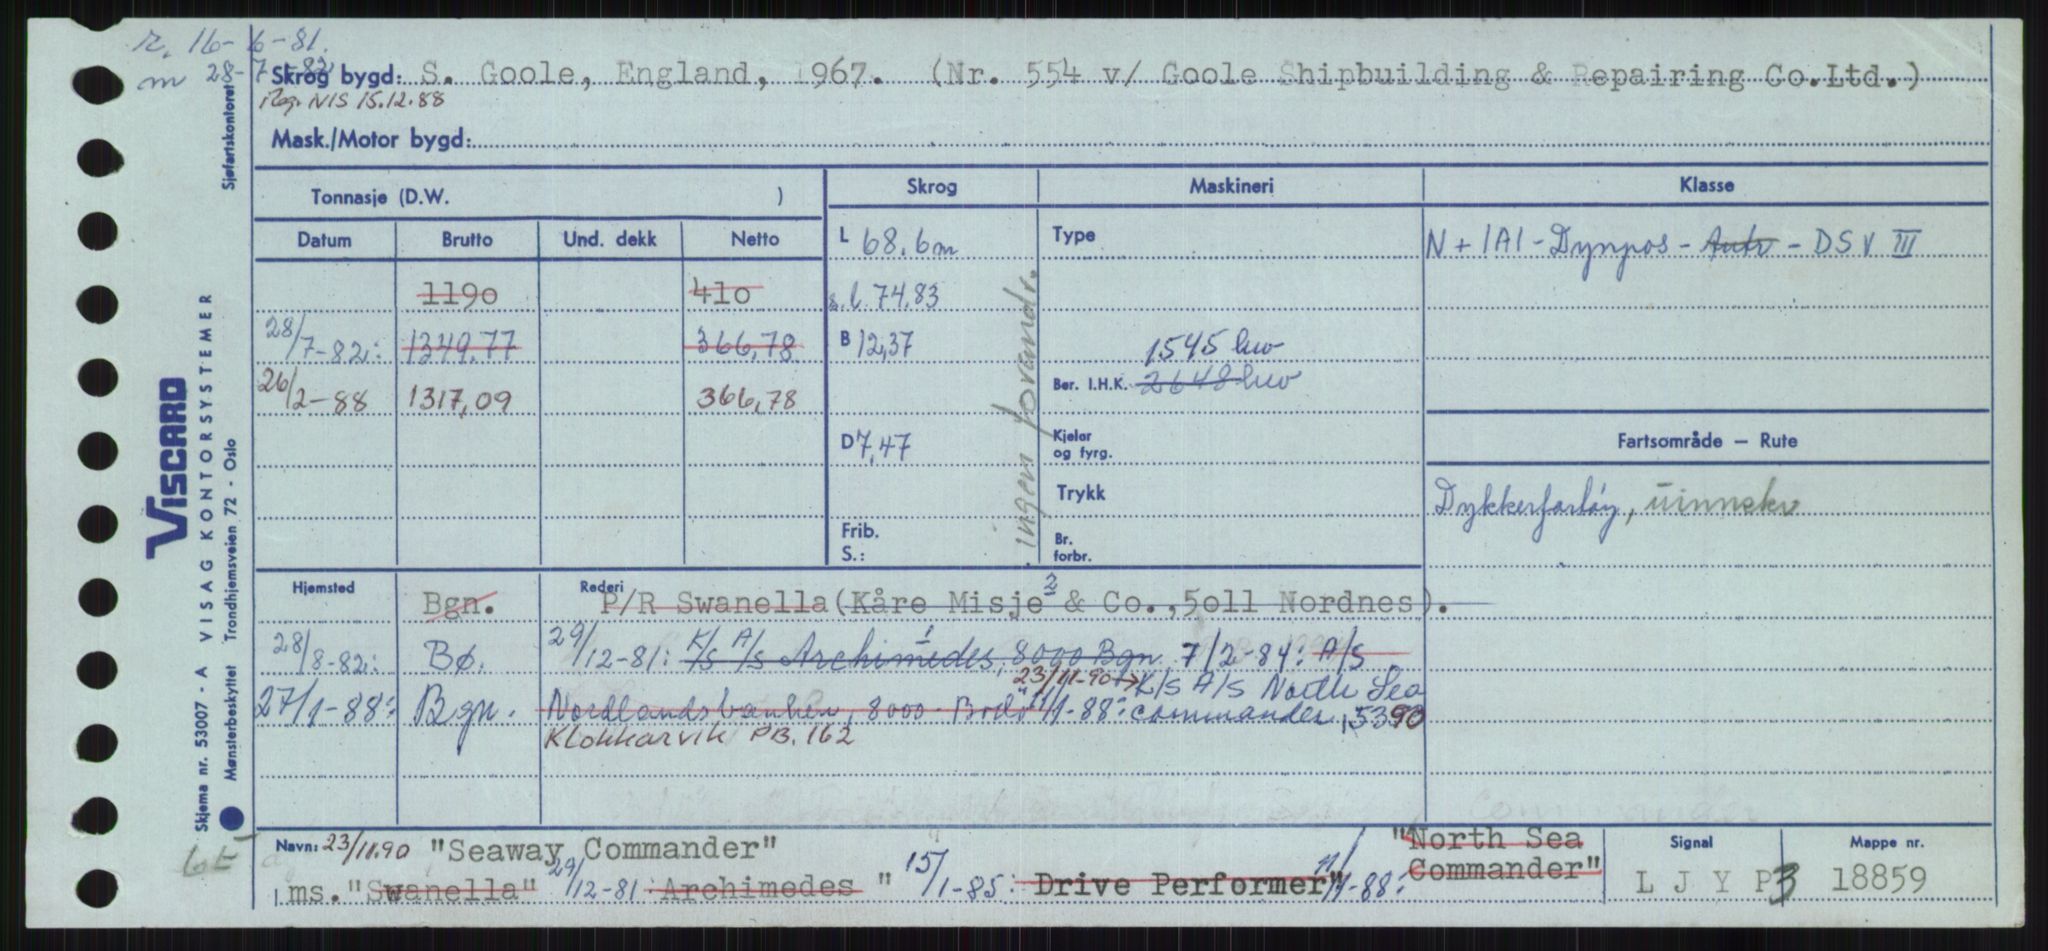 r. 16-6-81.
m 28-7-82
Skrog bygd: S. Goole, England, 1967. (Nr. 554 v/ Goole Shipbuilding & Repairing Co.Ltd.)
Reg. NIS 15.12.88
Mask./Motor bygd:
Sjøfartskontoret
Tonnasje (D.W. )
Skrog Maskineri Klasse
Datum Brutto Und. dekk Netto
L 68.6m Type N + 1A1 - Dynpos - Autr - DSV III
1190 410 s.l. 74.83
28/7-82: 1349,77 366,78 B 12,37 1545 kw
Ber. I.H.K. 2648 kw
26/2-88 1317,09 366,78
ingen forandr.
D 7,47 Kjeler og fyrg.
Fartsområde — Rute
Trykk
Dykkerfartøy,
Frib.
S.:
Br. forbr.
VISCARD
VISAG KONTORSYSTEMER
Skjema nr. 53007 - A
Mønsterbeskyttet Trondhjemsveien 72 - Oslo
Hjemsted Rederi 2
Bgn. P/R Swanella (Kåre Misje & Co., 5011 Nordnes).
28/8-82: Bø. 29/12-81: K/S A/S Archimedes, 8000 Bgn 7/2-84: A/S
23/11-90 → K/S A/S North Sea
27/1-88: Bgn. Nordlandsbanken, 8000 Bodø 11/1-88: Commander, 5390
Klokkarvik PB. 162
Navn: 23/11.90 "Seaway Commander" "North Sea Commander" Signal Mappe nr.
ms. "Swanella" 29/12-81 Archimedes " 15/1-85: Drive Performer" 11/1-88: L J Y P 3 18859